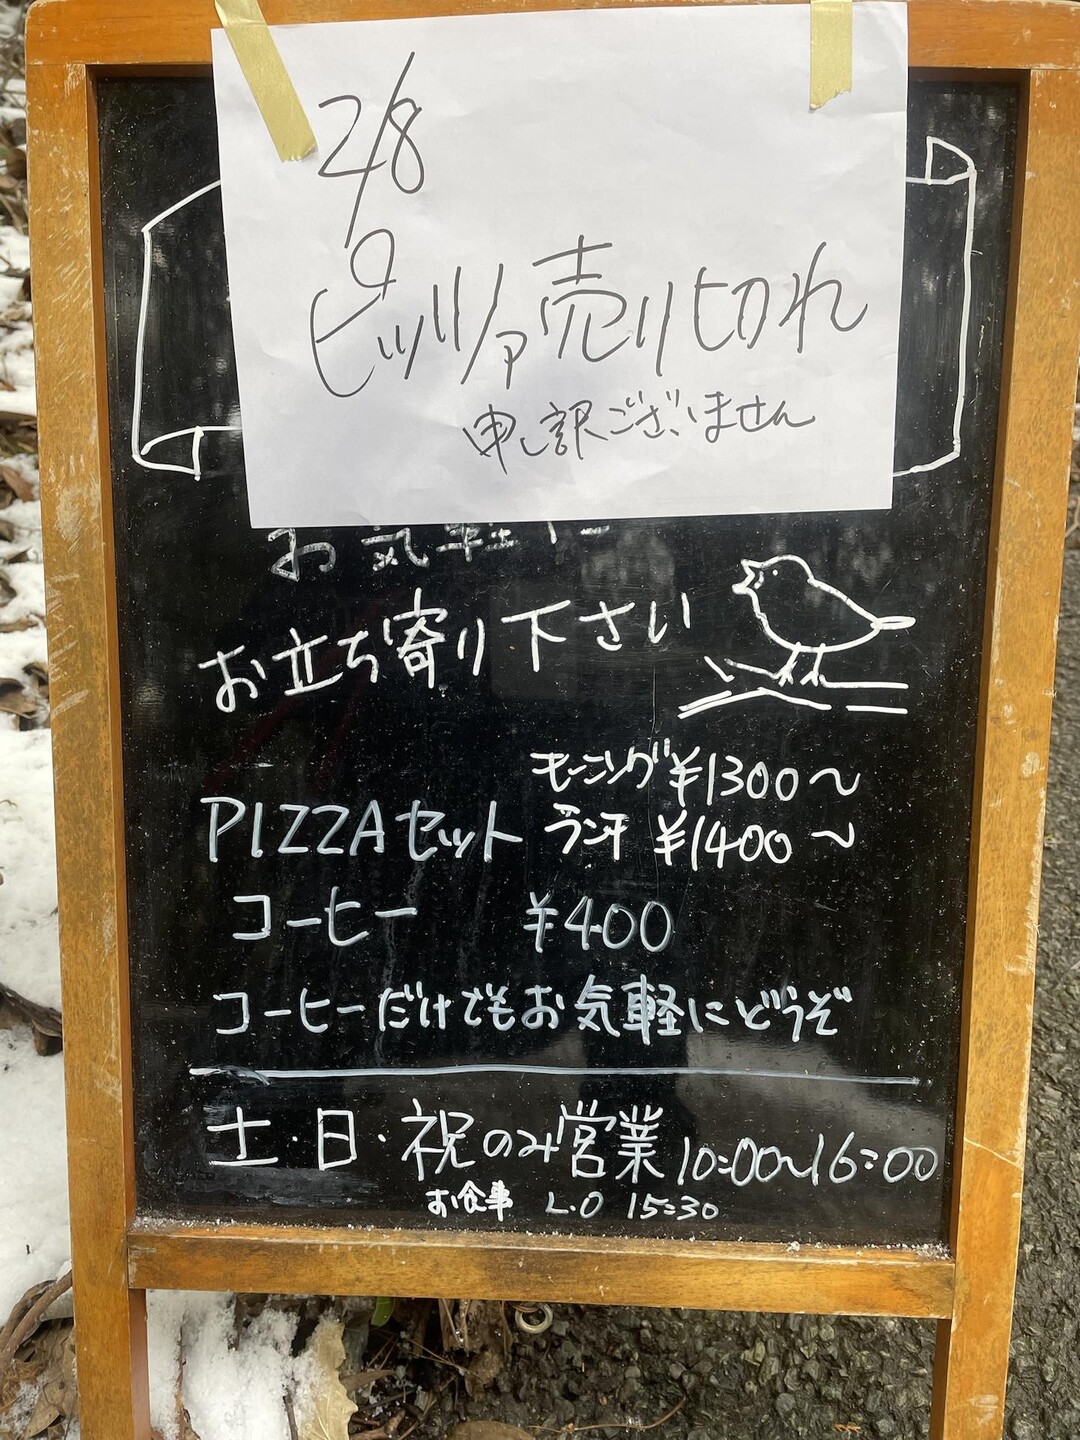 2/8
ピッツァ売り切れ
申し訳ございません
お気軽に
お立ち寄り下さい
モーニング ¥1300〜
PIZZAセット ランチ ¥1400〜
コーヒー ¥400
コーヒーだけでもお気軽にどうぞ
土・日・祝のみ営業 10:00〜16:00
お食事 L.O 15:30